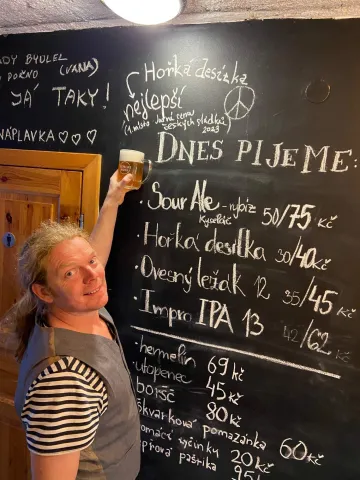 ADY BYDLEL
(VANA)
JÁ TAKY!
NÁPLAVKA ♡♡♡
Hořká desítka
nejlepší
(1. místo Jarní cena
českých sládků
2023
DNES PIJEME:
Sour Ale - rybíz 50/75 Kč
Kyseláč
· Hořká desítka 30/40 Kč
· Ovesný ležák 12 35/45 Kč
· Impro IPA 13 42/62 Kč
· hermelín 69 Kč
utopenec 45 Kč
boršč 80 Kč
škvarková pomazánka 60 Kč
omácí tyčinky 20 Kč
paprika 95 Kč